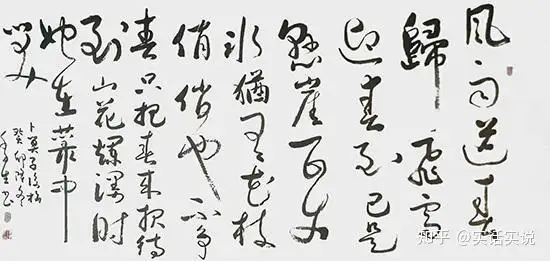 风雨送春
歸飛雪
迎春到已是
懸崖百丈
冰猶有花枝
俏俏也不争
春只把春来报待
到山花爛漫时
她在叢中
笑
卜算子詠梅
癸卯
知乎 @实话实说